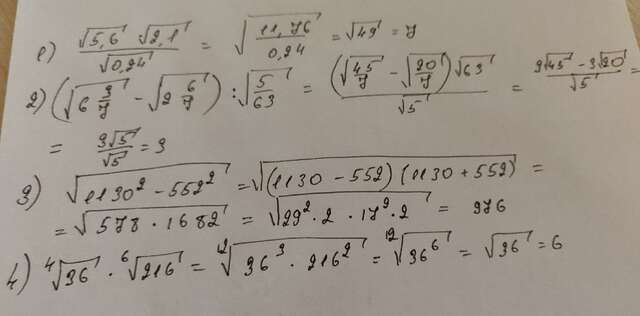 1) √5,6 √2,1 / √0,24 = √(11,76 / 0,24) = √49 = 7
2) (√(6 3/7) - √(2 6/7)) : √(5/63) = (√(45/7) - √(20/7)) √63 / √5 = (3√45 - 3√20) / √5 =
= 3√5 / √5 = 3
3) √(1130² - 552²) = √((1130 - 552) (1130 + 552)) =
= √(578 · 1682) = √(29² · 2 · 17² · 2) = 976
4) ⁴√36 · ⁶√216 = ¹²√(36³ · 216²) = ¹²√(36⁶) = √36 = 6